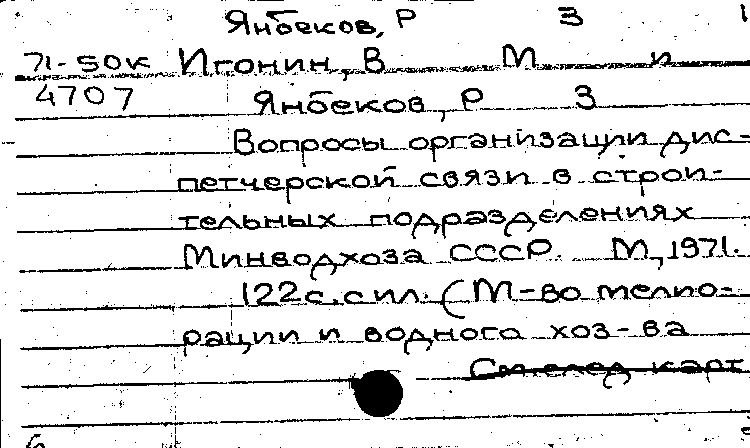 Янбеков, Р З
71-50к Игонин, В М и
4707 Янбеков, Р З
Вопросы организации дис-
петчерской связи в строи-
тельных подразделениях
Минводхоза СССР. М, 1971.
122с. с ил. (М-во мелио-
рации и водного хоз-ва
См. след карт